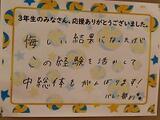 3年生のみなさん、応援ありがとうございました。
悔しい結果になったけど
この経験を活かして
中総体もがんばります!
バレー部